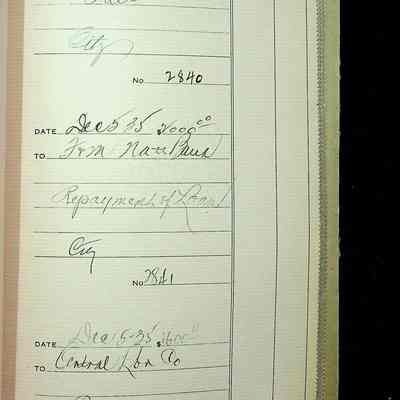 City
No 2840
DATE Dec 5 35 $1000.00
TO F & M Natl Bank
Repayment of Loan
City
No 2841
DATE Dec 5-35 $
TO Central Lbr Co